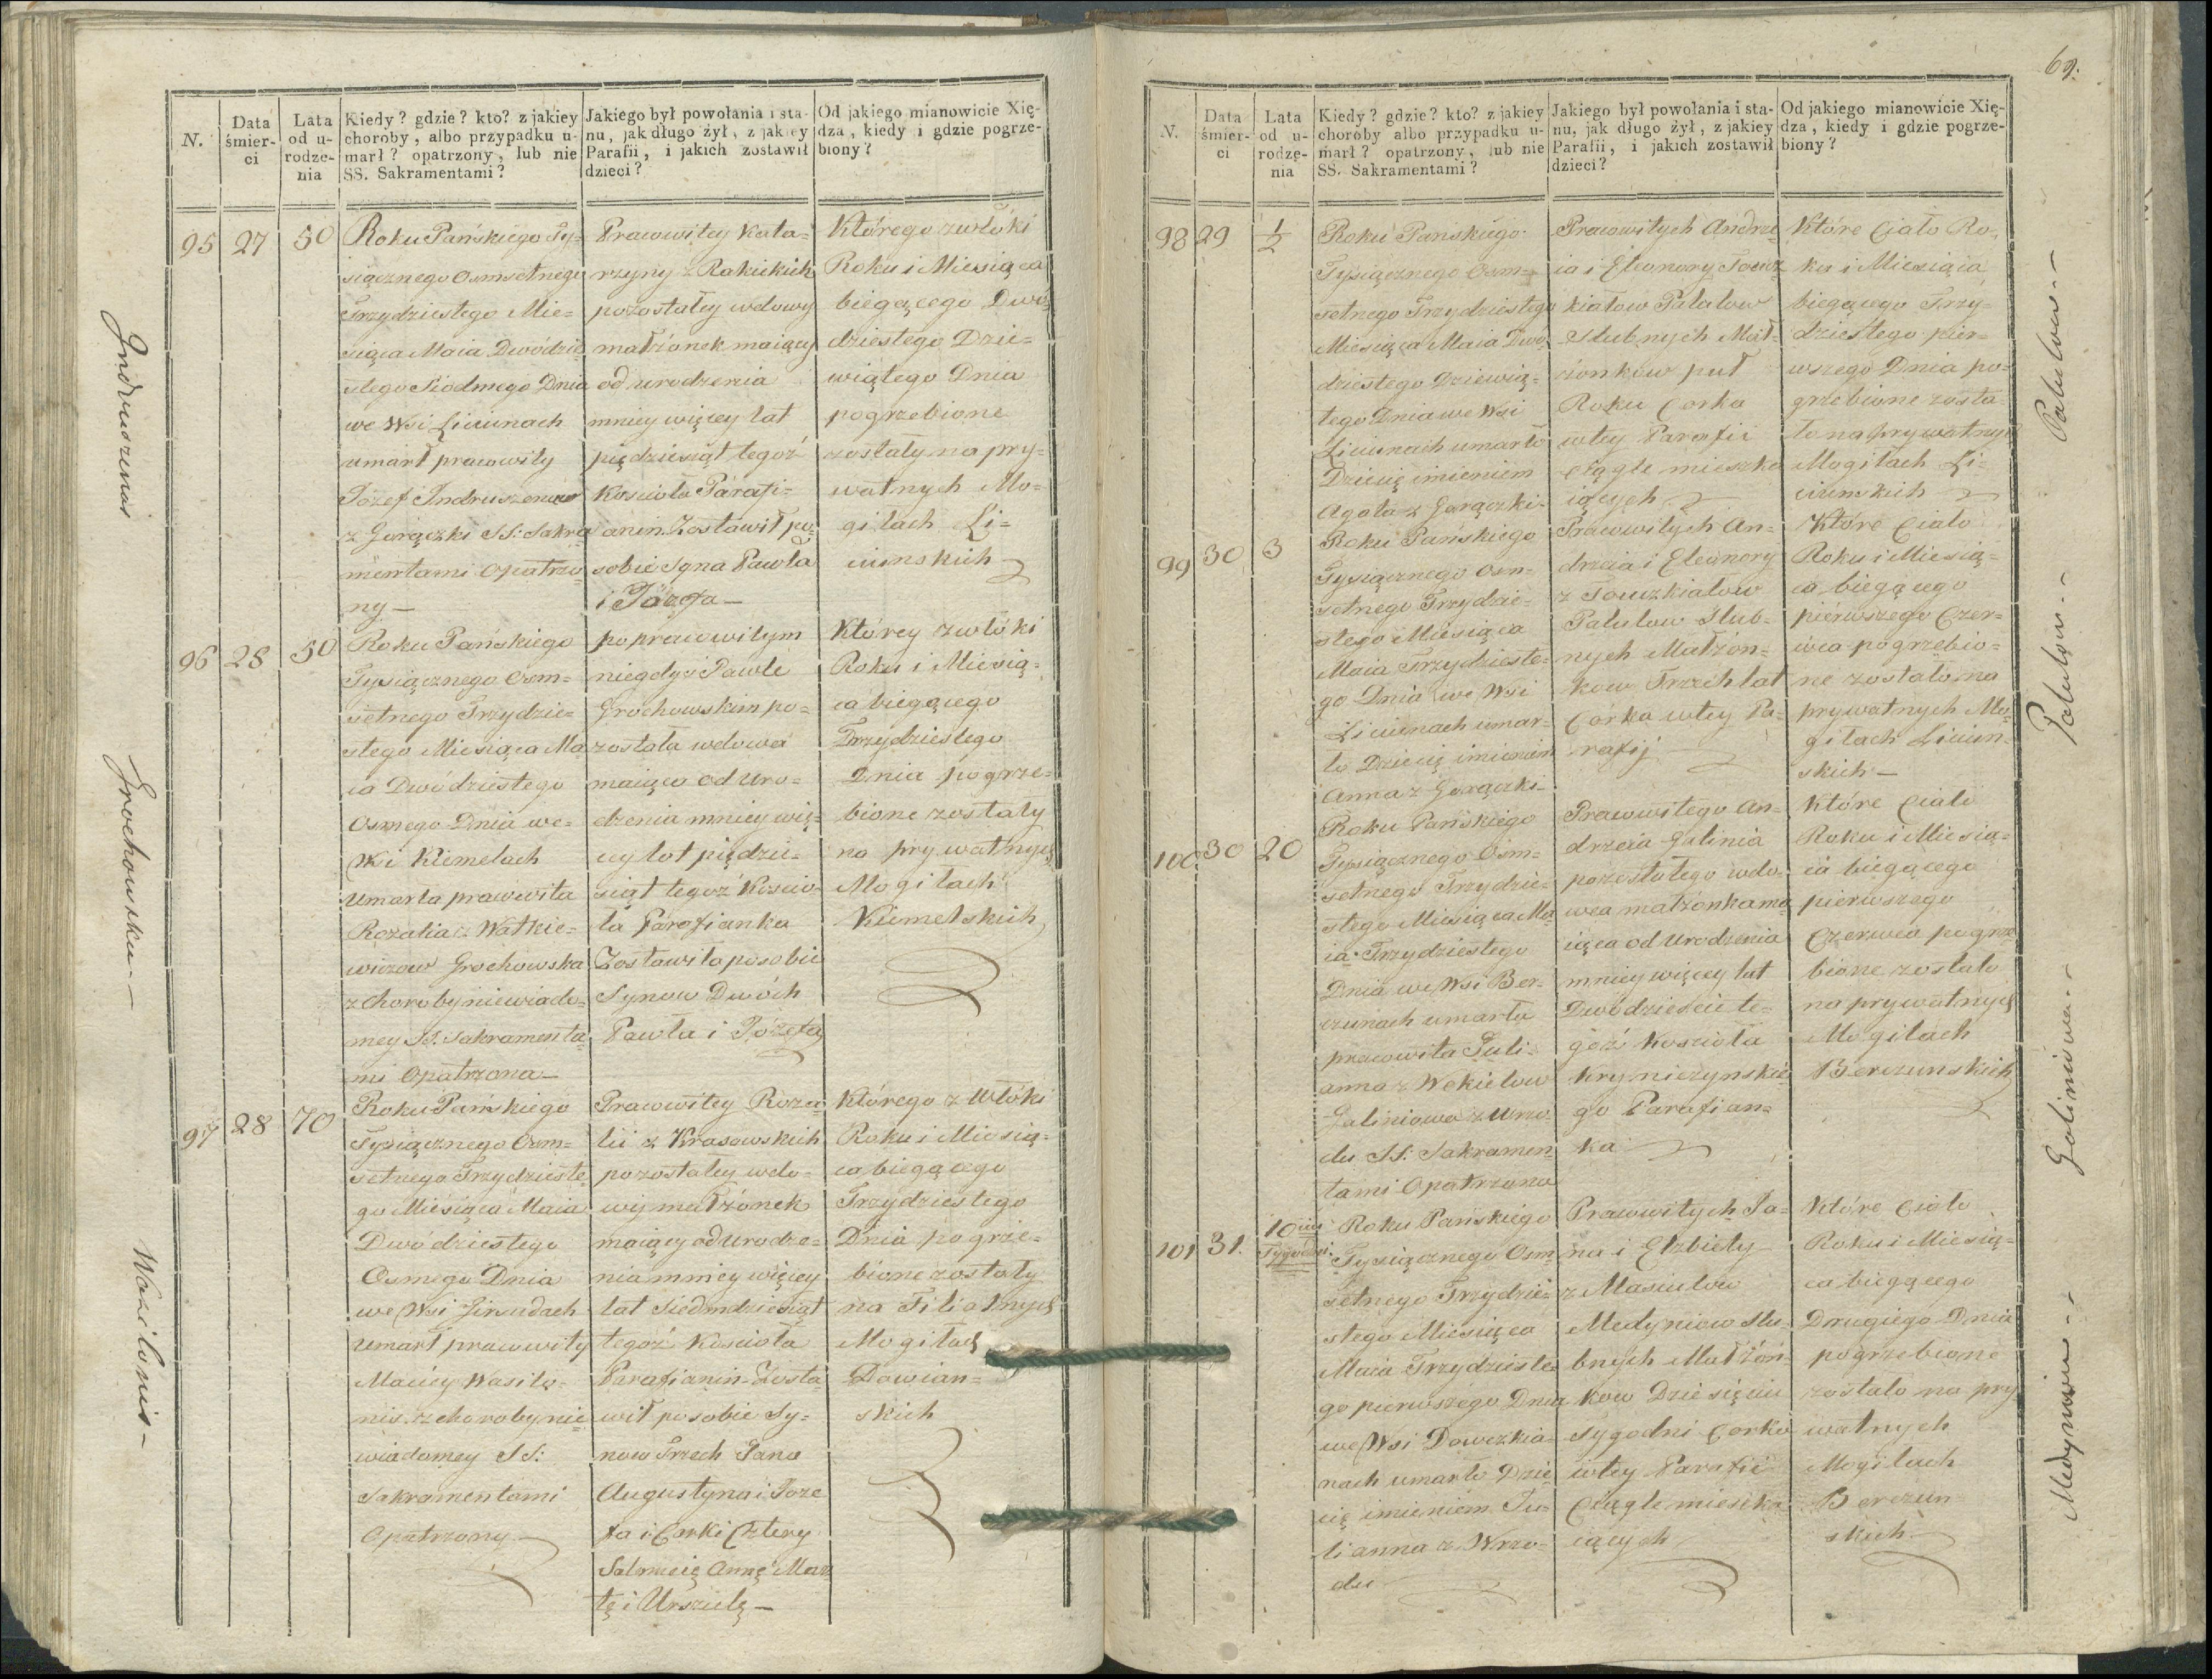 N.
Data śmier-
ci
Lata
od u-
rodze-
nia
Kiedy? gdzie? kto? z jakiey
choroby, albo przypadku u-
marł? opatrzony, lub nie
SS. Sakramentami?
Jakiego był powołania i sta-
nu, jak długo żył, z jakiey
Parafii, i jakich zostawił
dzieci?
Od jakiego mianowicie Xię-
dza, kiedy i gdzie pogrze-
biony?
95
27
50
Roku Pańskiego Ty-
siącznego Osmsetnego
Trzydziestego Mie=
siąca Maia Dwódzie
stego Siódmego Dnia
we Wsi Liciunach
umarł pracowity
Józef Indruszenas
z Gorączki SS: Sakra
mentami Opatrzo
ny—
Pracowitey Kata=
rzyny z Rakickich
pozostałey wdowy
małżonek maiący
od urodzenia
mniey więcey lat
pięćdziesiąt tegoż
Koscioła Parafi=
anin. Zostawił po
sobie Syna Pawła
i Józefa—
Którego zwłóki
Roku i Miesiąca
biegącego Dwó
dziestego Dzie=
wiątego Dnia
pogrzebione
zostały na pry=
watnych Mo=
giłach Li=
ciunskich
96
28
50
Roku Pańskiego
Tysiącznego Osm=
setnego Trzydzie=
stego Miesiąca Ma
ia Dwódziestego
Osmego Dnia we=
Wsi Kiemelach
Umarła pracowita
Rozalia z Watkie=
wiczow Grochowska
z choroby niewiado=
mey SS. Sakramenta=
mi Opatrzona—
po pracowitym
niegdyś Pawle
Grochowskim po=
została wdowa
maiąca od Uro=
dzenia mniey wię=
cey lat pięćdzie=
siąt tegoż Koscio=
ła Parafianka
Zostawiła po sobie
Synow Dwóch
Pawła i Józefa
Którey zwłóki
Roku i Miesią=
ca biegącego
Trzydziestego
Dnia pogrze=
bione zostały
na prywatnych
Mogiłach
Kiemelskich
97
28
70
Roku Pańskiego
Tysiącznego Osm=
setnego Trzydzieste
go Miesiąca Maia
Dwódziestego
Osmego Dnia
we Wsi Girsudach
Umarł pracowity
Maciey Wasilo=
nis z choroby nie
wiadomey SS:
Sakramentami
Opatrzony—
Pracowitey Roza=
lii z Krasowskich
pozostałey wdo=
wy małżonek
maiący od Urodze=
nia mniey więcey
lat Siedmdziesiąt
tegoż Koscioła
Parafianin. Zosta=
wił po sobie Sy=
now Trzech Jana
Augustyna i Joze
fa i Corki Cztery
Salmeię Annę Mar
tę i Urszulę—
Którego zwłóki
Roku i Miesią=
ca biegącego
Trzydziestego
Dnia pogrze=
bione zostały
na Filialnych
Mogiłach
Dowian=
skich
Indruszenas
Grochowska—
Wasilonis—
69.
N.
Data
śmier-
ci
Lata
od u-
rodze-
nia
Kiedy? gdzie? kto? z jakiey
choroby albo przypadku u-
marł? opatrzony, lub nie
SS. Sakramentami?
Jakiego był powołania i sta-
nu, jak długo żył, z jakiey
Parafii, i jakich zostawił
dzieci?
Od jakiego mianowicie Xię-
dza, kiedy i gdzie pogrze-
biony?
98
29
1/2
Roku Pańskiego
Tysiącznego Osm=
setnego Trzydziestego
Miesiąca Maia Dwó
dziestego Dziewią=
tego Dnia we Wsi
Liciunach umarło
Dziecię imieniem
Agata z Gorączki—
Pracowitych Andrze
ia i Eleonory Towcz
kiałow Palulow
Slubnych Mał=
żonkow puł
Roku Corka
w tey Parafii
ciągle mieszka
iących
Które Ciało Ro=
ku i Miesiąca
biegącego Trzy=
dziestego pier=
wszego Dnia po=
grzebione zosta
ło na prywatnych
Mogiłach Li=
ciunskich
99
30
3
Roku Pańskiego
Tysiącznego Osm=
setnego Trzydzie=
stego Miesiąca
Maia Trzydzieste=
go Dnia we Wsi
Liciunach umar=
ło Dziecię imieniem
Anna z Gorączki—
Pracowitych An=
drzeia i Eleonory
z Towczkiałow
Palulow Slub=
nych Małżon=
kow Trzech lat
Córka w tey Pa=
rafij
Które Ciało
Roku i Miesią=
ca biegącego
pierwszego Czer=
wca pogrzebio=
ne zostało na
prywatnych Mo=
giłach Liciun=
skich—
100
30
20
Roku Pańskiego
Tysiącznego Osm=
setnego Trzydzie=
stego Miesiąca Ma
ia Trzydziestego
Dnia we Wsi Ber=
czunach umarła
pracowita Juli=
anna z Wekielow
Galiniowa z Wrzo=
du SS: Sakramen=
tami Opatrzona
Pracowitego An=
drzeia Galinia
pozostałego wdo=
wca małżonka ma
iąca od Urodzenia
mniey więcey lat
Dwódzieścia te=
goż Koscioła
Kryniczynskie
go Parafian=
ka
Które Ciało
Roku i Miesią=
ca biegącego
pierwszego
Czerwca pogrze
bione zostało
na prywatnych
Mogiłach
Berczunskich
101
31.
10 iu
Tygodni.
Roku Pańskiego
Tysiącznego Osm
setnego Trzydzie=
stego Miesiąca
Maia Trzydzieste
go pierwszego Dnia
we Wsi Dowczkia=
nach umarło Dzie
cię imieniem Ju=
lianna z Wrzo=
du
Pracowitych Ja=
na i Elzbiety
z Masiulow
Medyniow Slu=
bnych Małżon=
kow Dziesięciu
Tygodni Corka
w tey Parafii
Ciągle mieszka
iących
Które Ciało
Roku i Miesią=
ca biegącego
Drugiego Dnia
pogrzebione
zostało na pry
watnych
Mogiłach
Berczun
skich
Palulow—
Palulow—
Galiniowa—
Medyniow—